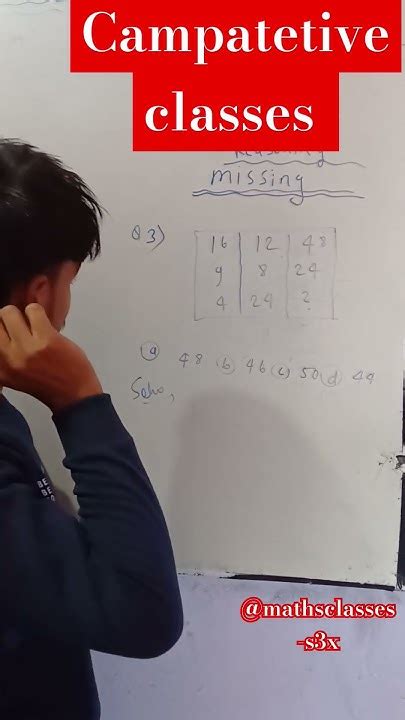 Campatetive
classes
missing
Q3)
16 12 48
9 8 24
4 24 ?
(a) 48 (b) 46 (c) 50 (d) 49
Solno,
@mathsclasses
-s3x